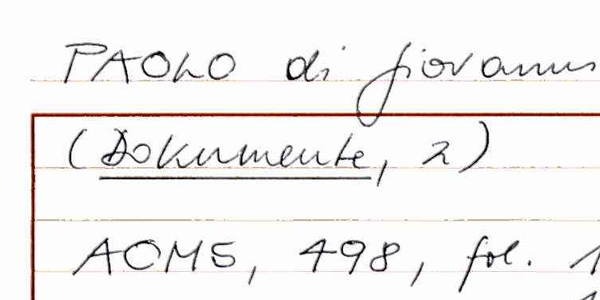 PAOLO di Giovanni
(Dokumente, 2)
AOMS, 498, fol. 1